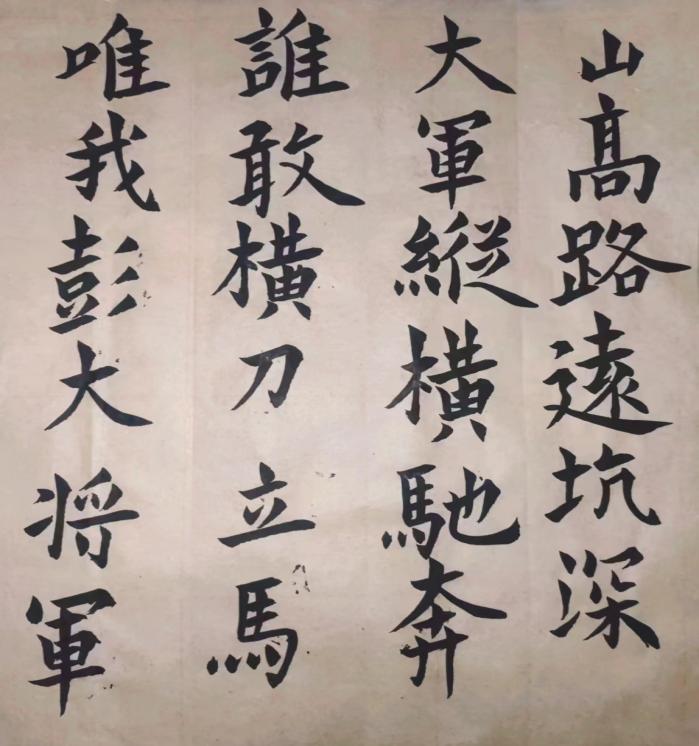 山高路遠坑深
大軍縱橫馳奔
誰敢横刀立馬
唯我彭大将軍